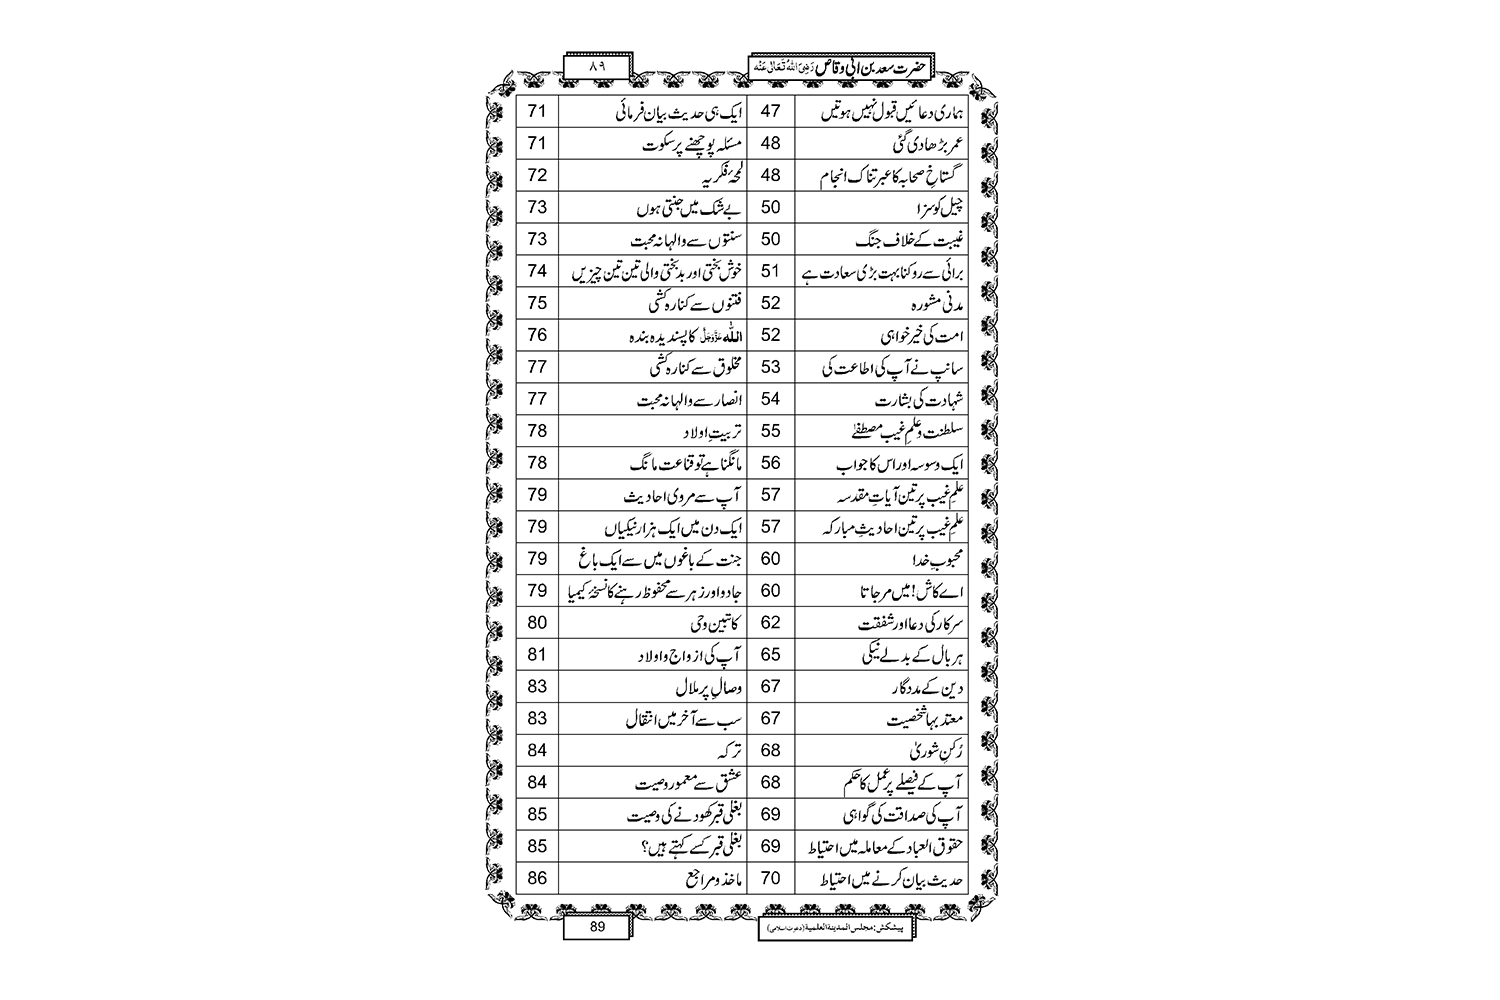 حضرت سعد بن ابی وقاص رَضِیَ اللہُ تَعَالٰی عَنْہ
۸۹
ہماری دعائیں قبول نہیں ہوتیں 47
عمر بڑھا دی گئی 48
گستاخِ صحابہ کا عبرتناک انجام 48
چیل کو سزا 50
غیبت کے خلاف جنگ 50
برائی سے روکنا بہت بڑی سعادت ہے 51
مدنی مشورہ 52
امت کی خیر خواہی 52
سانپ نے آپ کی اطاعت کی 53
شہادت کی بشارت 54
سلطنت و علمِ غیب مصطفےٰ 55
ایک وسوسہ اور اس کا جواب 56
علمِ غیب پر تین آیاتِ مقدسہ 57
علمِ غیب پر تین احادیثِ مبارکہ 57
محبوبِ خدا 60
اے کاش! میں مر جاتا 60
سرکار کی دعا اور شفقت 62
ہر بال کے بدلے نیکی 65
دین کے مددگار 67
معتد بہا شخصیت 67
رُکنِ شوریٰ 68
آپ کے فیصلے پر عمل کا حکم 68
آپ کی صداقت کی گواہی 69
حقوق العباد کے معاملہ میں احتیاط 69
حدیث بیان کرنے میں احتیاط 70
ایک ہی حدیث بیان فرمائی 71
مسئلہ پوچھنے پر سکوت 71
لمحۂ فکریہ 72
بے شک میں جنتی ہوں 73
سنتوں سے والہانہ محبت 73
خوش بختی اور بدبختی والی تین تین چیزیں 74
فتنوں سے کنارہ کشی 75
اللہ عَزَّوَجَلَّ کا پسندیدہ بندہ 76
مخلوق سے کنارہ کشی 77
انصار سے والہانہ محبت 77
تربیتِ اولاد 78
مانگنا ہے تو قناعت مانگ 78
آپ سے مروی احادیث 79
ایک دن میں ایک ہزار نیکیاں 79
جنت کے باغوں میں سے ایک باغ 79
جادو اور زہر سے محفوظ رہنے کا نسخۂ کیمیا 79
کاتبین وحی 80
آپ کی ازواج و اولاد 81
وصالِ پر ملال 83
سب سے آخر میں انتقال 83
ترکہ 84
عشق سے معمور وصیت 84
بغلی قبر کھودنے کی وصیت 85
بغلی قبر کسے کہتے ہیں؟ 85
ماخذ و مراجع 86
پیشکش: مجلس المدینۃ العلمیۃ (دعوتِ اسلامی)
89